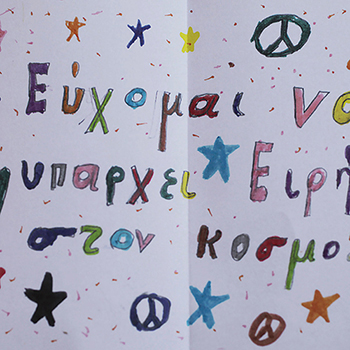 Εύχομαι να
υπαρχει Ειρή
στον κοσμο